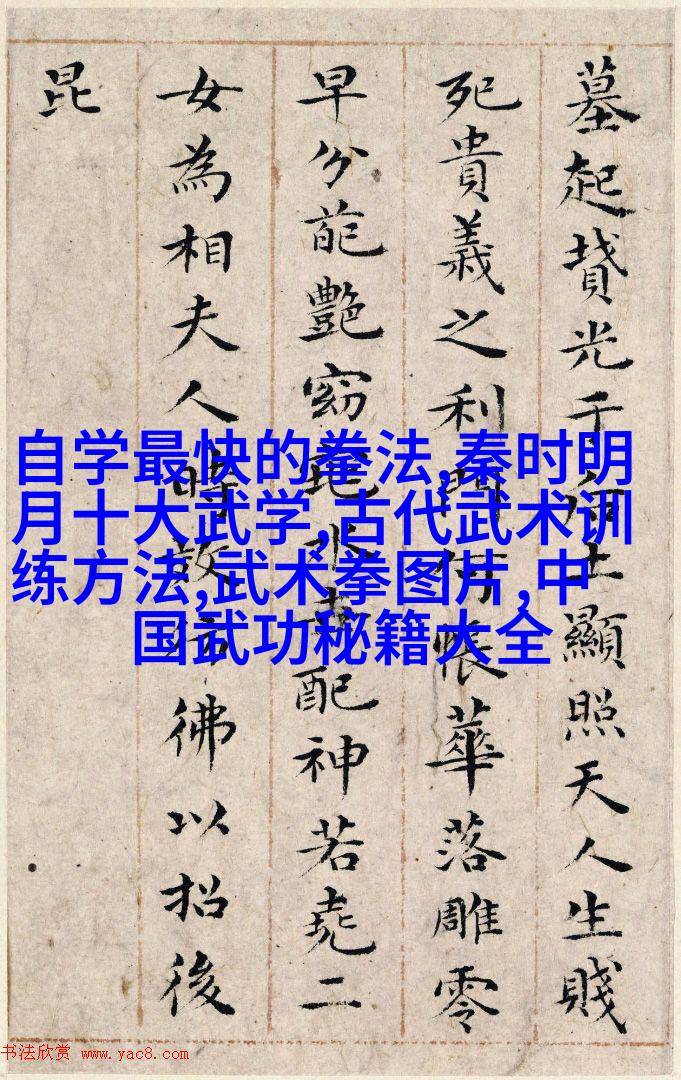 墓起墳光于后土顯照天人生賤
死貴義之利門何悵華落雕零
早分葩艷窈窕永世配神若堯二
女為相夫人時效彷彿以招後
昆
自学最快的拳法,秦时明
月十大武学,古代武术训
练方法,武术拳图片,中
国武功秘籍大全
书法欣赏 www.yac8.com